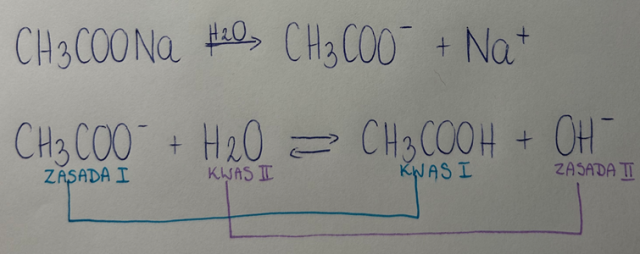 CH3COONa H2O→ CH3COO⁻ + Na⁺
CH3COO⁻ + H2O ⇌ CH3COOH + OH⁻
ZASADA I KWAS II KWAS I ZASADA II